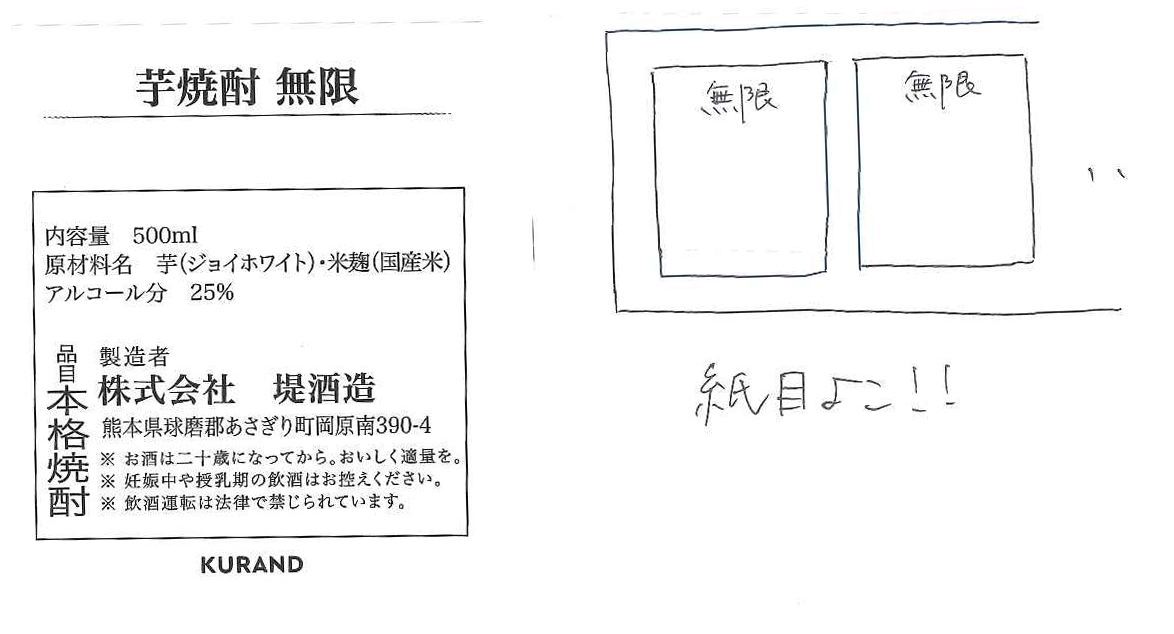 芋焼酎 無限
内容量　500ml
原材料名　芋(ジョイホワイト)・米麹(国産米)
アルコール分　25%
品目
本格焼酎
製造者
株式会社　堤酒造
熊本県球磨郡あさぎり町岡原南390-4
※ お酒は二十歳になってから。おいしく適量を。
※ 妊娠中や授乳期の飲酒はお控えください。
※ 飲酒運転は法律で禁じられています。
KURAND
無限
無限
紙目よこ!!